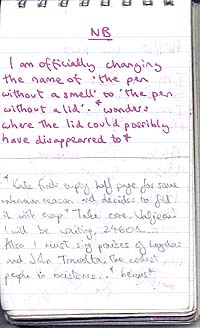 NB
I am officially changing
the name of 'the pen
without a smell' to 'the pen
without a lid'. *wonders
where the lid could possibly
have disappeared to*
*Kate finds empty half page for some
unknown reason and decides to fill
it with crap* Take care, Valjean
I will be waiting, 24601...
Also I must sing praises of Legolas
and John Travolta, the coolest
people in existence...